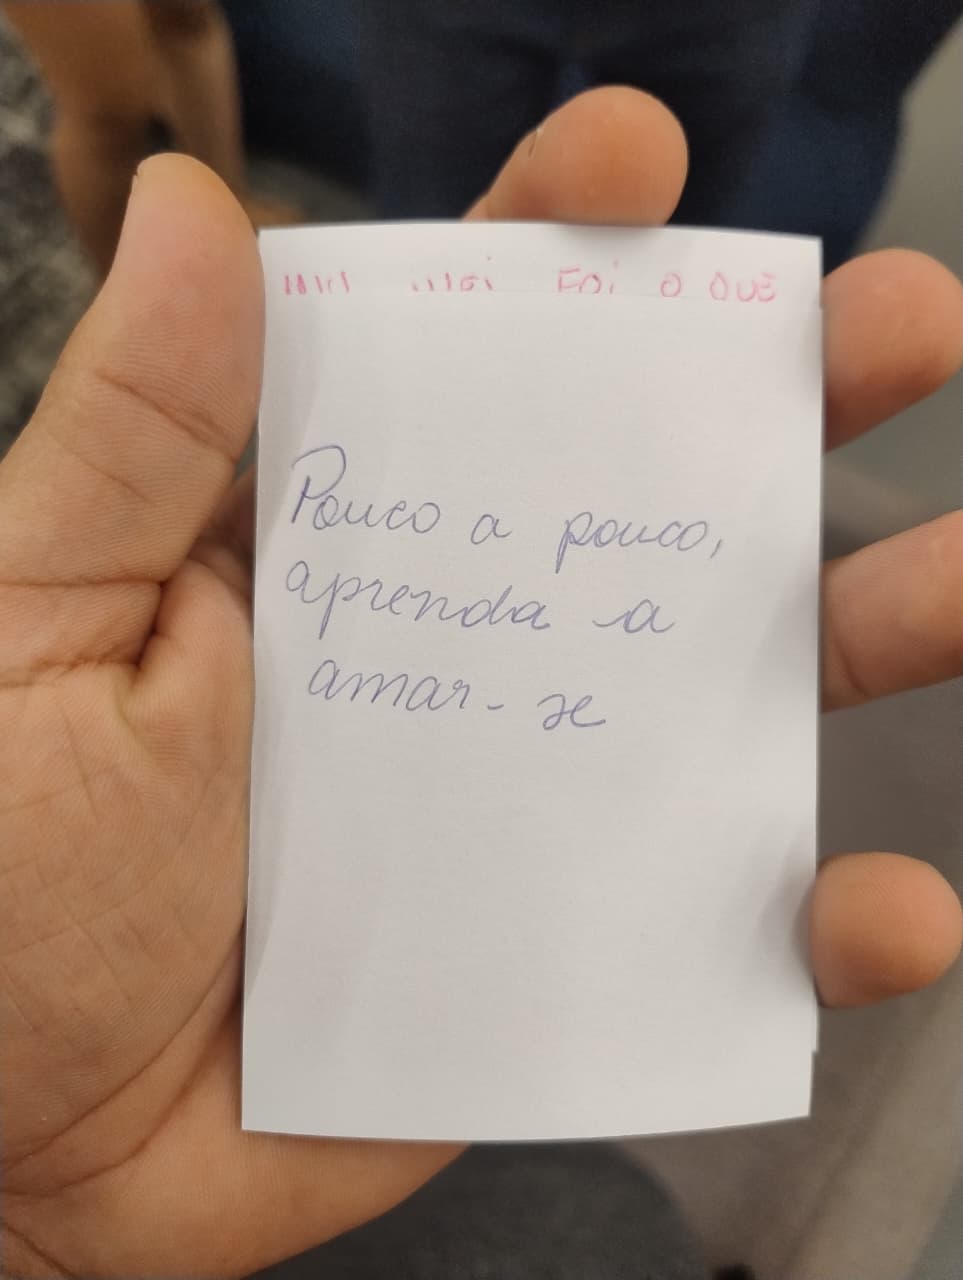 FOI O QUE
Pouco a pouco,
aprenda a
amar-se